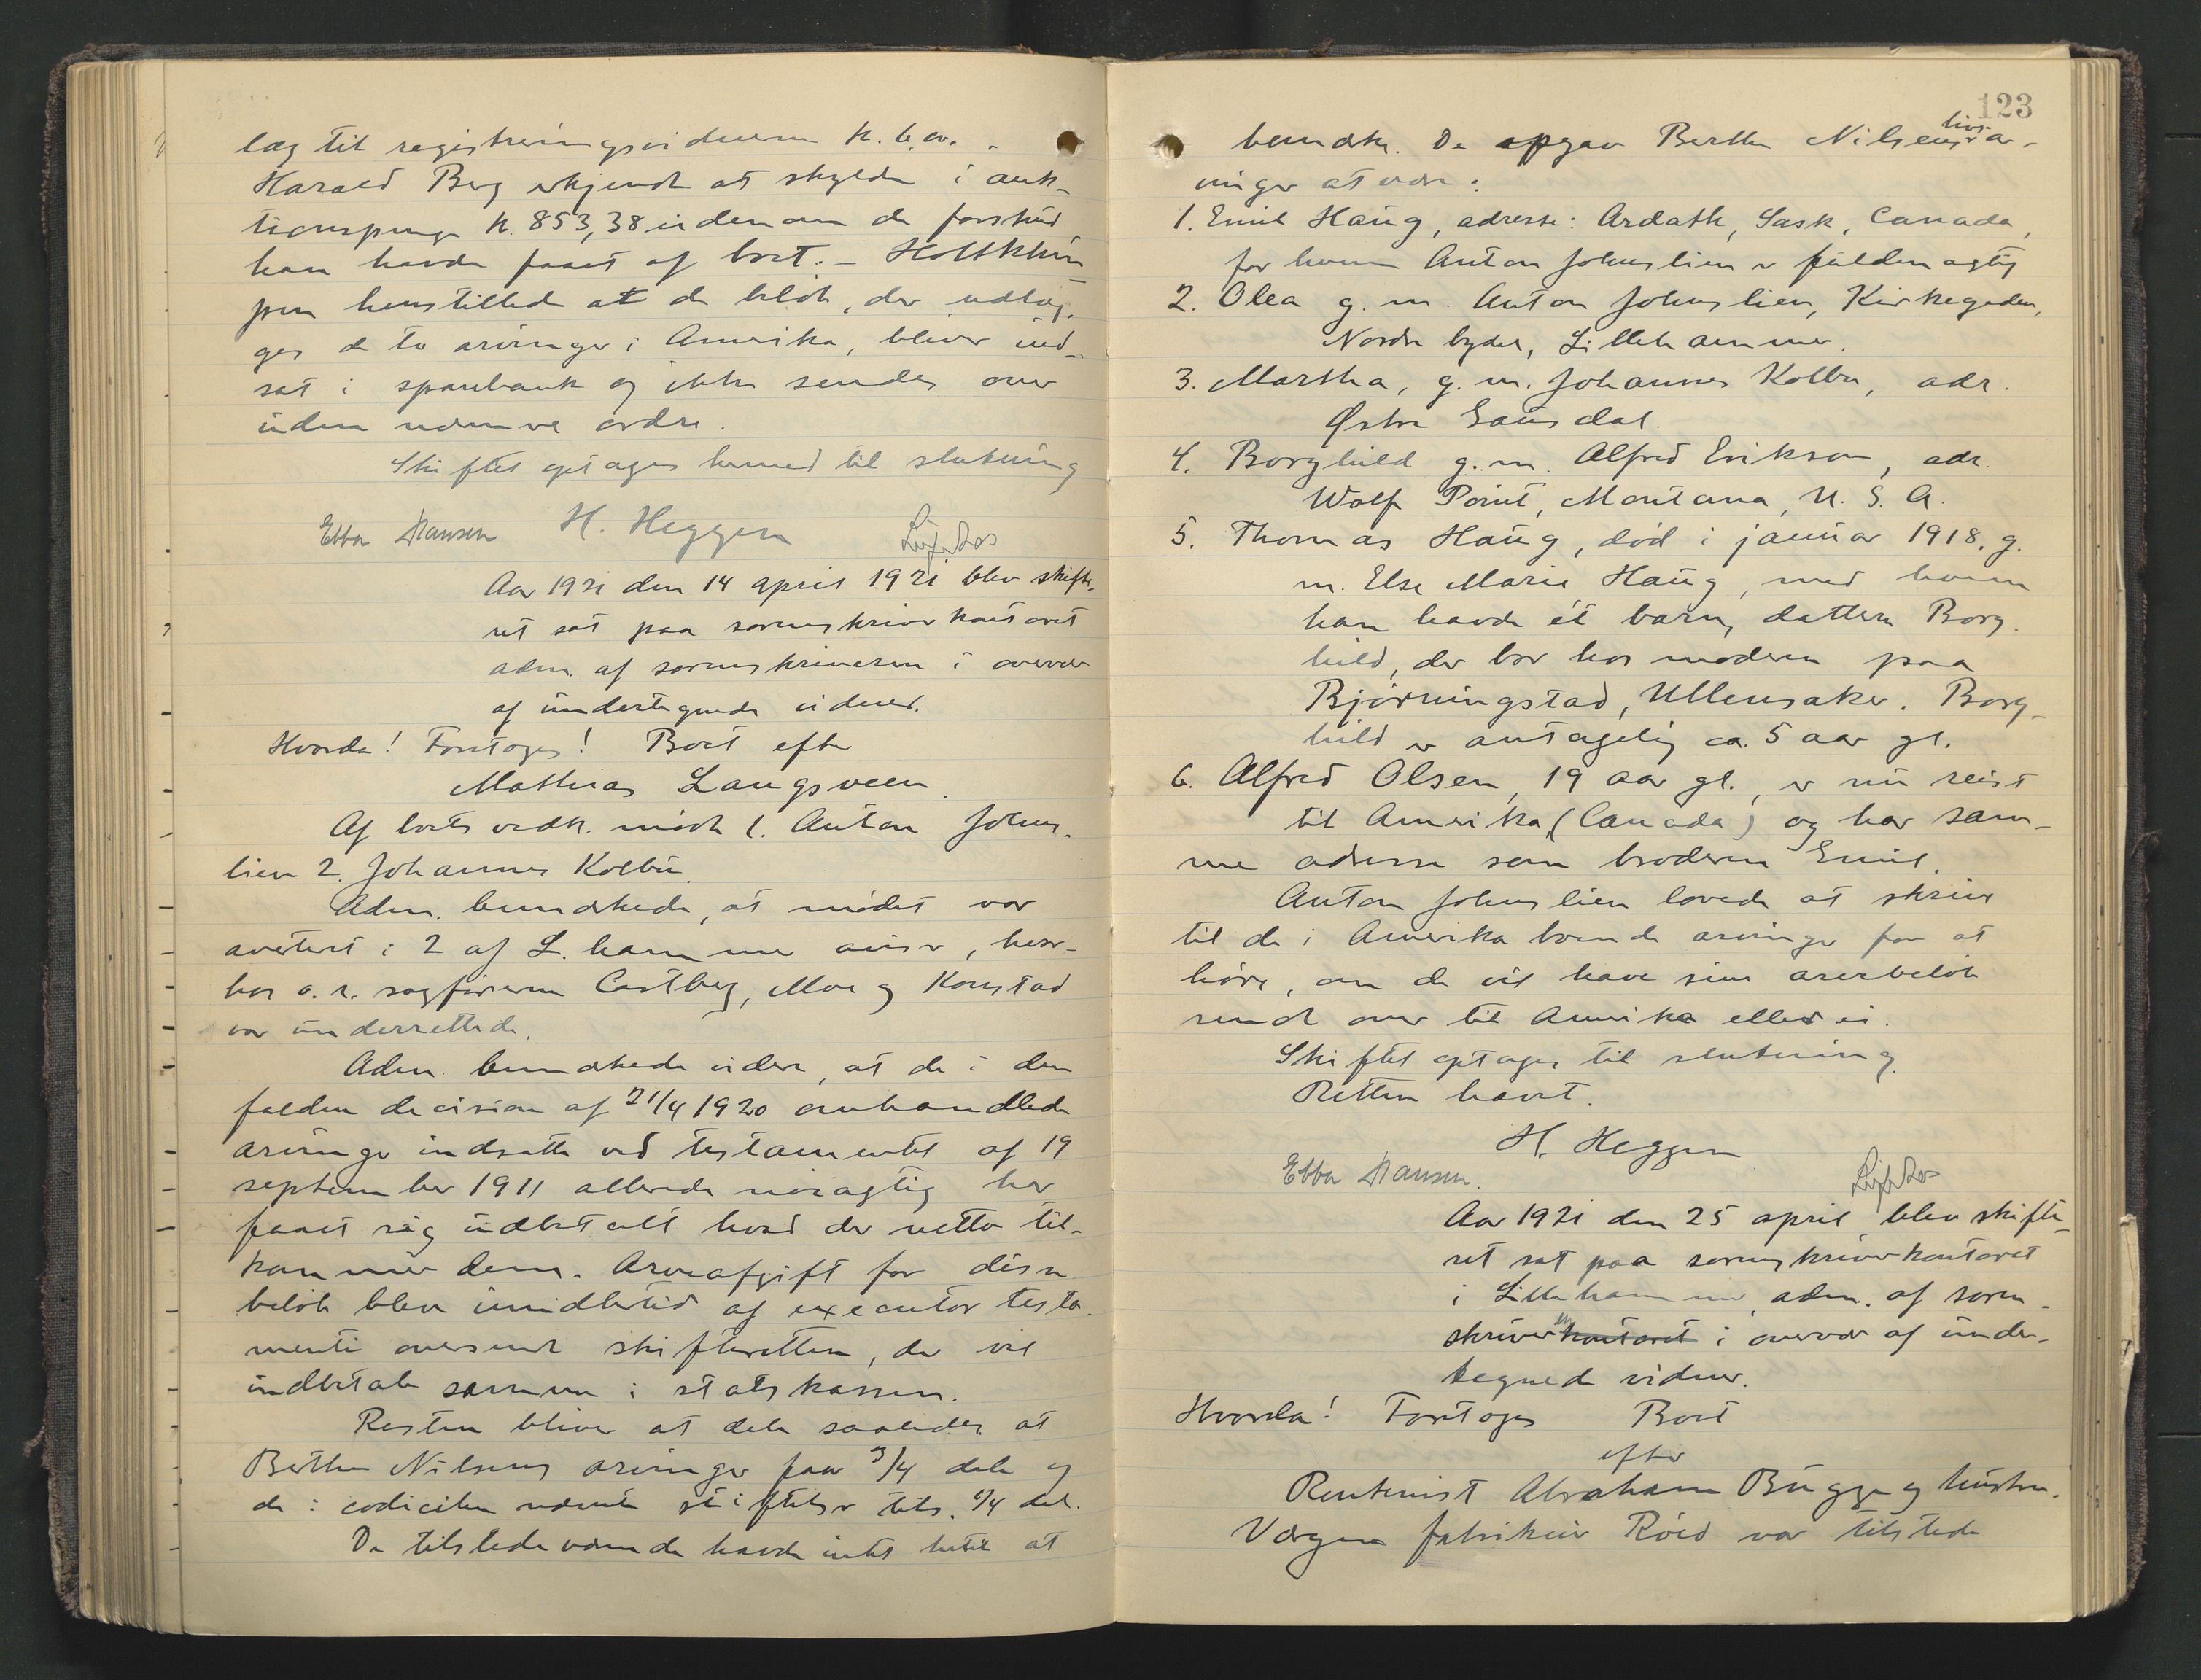 læg til registreringsvidnerne k. 6.
Harald Berg erkjendte at skylde i auk-
tionspenge k. 853,38 udenom de forskud
han havde faaet af boet. –
henstilled at de beløb, der udlæg-
ges de to arvinger i Amerika, bliver ind-
sat i sparebank og ikke sendes over
uden nærmere ordre.
Skiftet optages hermed til slutning
Ebba Hansen H. Heggen
Aar 1921 den 14 april 1921 blev skifte-
ret sat paa sorenskriverkontoret
adm. af sorenskriveren i overvær
af undertegnede vidner.
Hvorda! Foretoges! Boet efter
Mathias Langsveen.
Af boets vedk. mødte 1. Anton Johns-
lien 2. Johannes Kolbu.
Adm. bemærkede, at mødet var
avertert i 2 af L.hammer aviser, hvor-
hos o. r. sagførerne Castberg, Moe og Konstad
var underrettede.
Adm. bemærkede videre, at de i den
faldne decision af 21/4 1920 omhandlede
arvinger indsatte ved testamentet af 19
september 1911 allerede nøiagtig har
faaet sig udbetalt hvad der netto til-
kommer dem. Arveafgift for disse
beløb blev imidlertid af executor testa-
menti oversendt skifteretten, der vil
indbetale samme i statskassen.
Resten bliver at dele saaledes at
Berthe Nilsens arvinger faar 3/4 dele og
de i codicilen nævnte stiftelser tils. 1/4 del.
De tilstedeværende havde intet hertil at
123
bemærke. De opgav Berthe Nilsens livsar-
vinger at være:
1. Emil Haug, adresse: Ardath, Sask, Canada,
for hvem Anton Johnslien er fuldmægtig
2. Olea g. m. Anton Johnslien, Kirkegaden,
Nordre bydel, Lillehammer.
3. Martha, g. m. Johannes Kolbu, adr.
Østre Gausdal.
4. Borghild g. m. Alfred Erikson, adr.
Wolf Point, Montana, U. S. A.
5. Thomas Haug, død i januar 1918, g.
m. Else Marie Haug, med hvem
han havde ét barn, datteren Borg-
hild, der bor hos moderen paa
Bjørningstad, Ullensaker. Borg-
hild er antagelig ca. 5 aar gl.
6. Alfred Olsen, 19 aar gl., er nu reist
til Amerika, (Canada) og har sam-
me adresse som broderen Emil.
Anton Johnslien lovede at skrive
til de i Amerika boende arvinger for at
høre, om de vil have sine arvebeløb
sendt over til Amerika eller ei.
Skiftet optages til slutning.
Retten hævet.
H. Heggen
Ebba Hansen.
Aar 1921 den 25 april blev skifte-
ret sat paa sorenskriverkontoret
i Lillehammer, adm. af soren-
skriveren kontoret i overvær af under-
tegnede vidner.
Hvorda! Foretoges Boet
efter
Rentenist Abraham Bugge og hustru.
Værgen fabrikeier Røed var tilstede